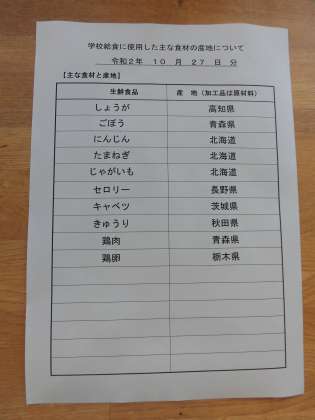 学校給食に使用した主な食材の産地について
令和２年 １０ 月 ２７ 日 分
【主な食材と産地】
生鮮食品 産 地（加工品は原材料）
しょうが 高知県
ごぼう 青森県
にんじん 北海道
たまねぎ 北海道
じゃがいも 北海道
セロリー 長野県
キャベツ 茨城県
きゅうり 秋田県
鶏肉 青森県
鶏卵 栃木県